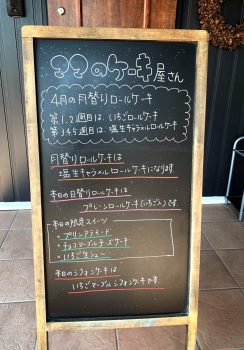 ママのケーキ屋さん
4月の月替りロールケーキ
第1.2週目は いちごロールケーキ
第3.4.5週目は 塩生キャラメルロールケーキ
月替りロールケーキは
塩生キャラメルロールケーキになります
本日の日替りロールケーキは
プレーンロールケーキ(いちご入り)です
本日の限定スイーツ
・プリンアラモード
・チョコマーブルチーズケーキ
・いちご生シュー
本日のシフォンケーキは
いちごマーブルシフォンケーキです